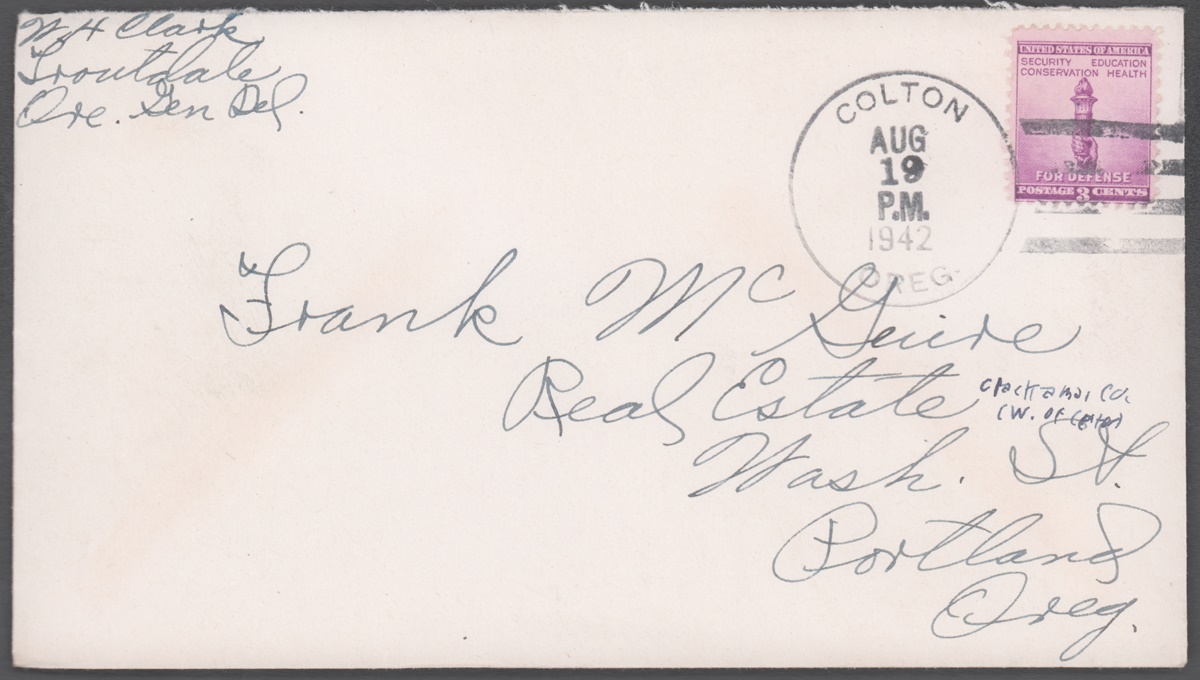 W.H Clark
Troutdale
Ore. Gen Del.
COLTON
AUG
19
P.M.
1942
OREG.
UNITED STATES OF AMERICA
SECURITY EDUCATION
CONSERVATION HEALTH
FOR DEFENSE
POSTAGE 3 CENTS
Frank McGuire
Real Estate
Clackamas Co.
(W. of
Wash. St.
Portland
Oreg.